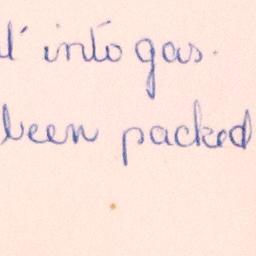 into gas.
been packed